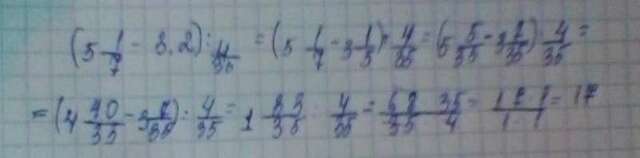 (5 1/7 - 3,2) : 4/35 = (5 1/7 - 3 1/5) : 4/35 = (5 5/35 - 3 7/35) : 4/35 =
= (4 40/35 - 3 7/35) : 4/35 = 1 33/35 : 4/35 = 68/35 · 35/4 = 17·1/1·1 = 17